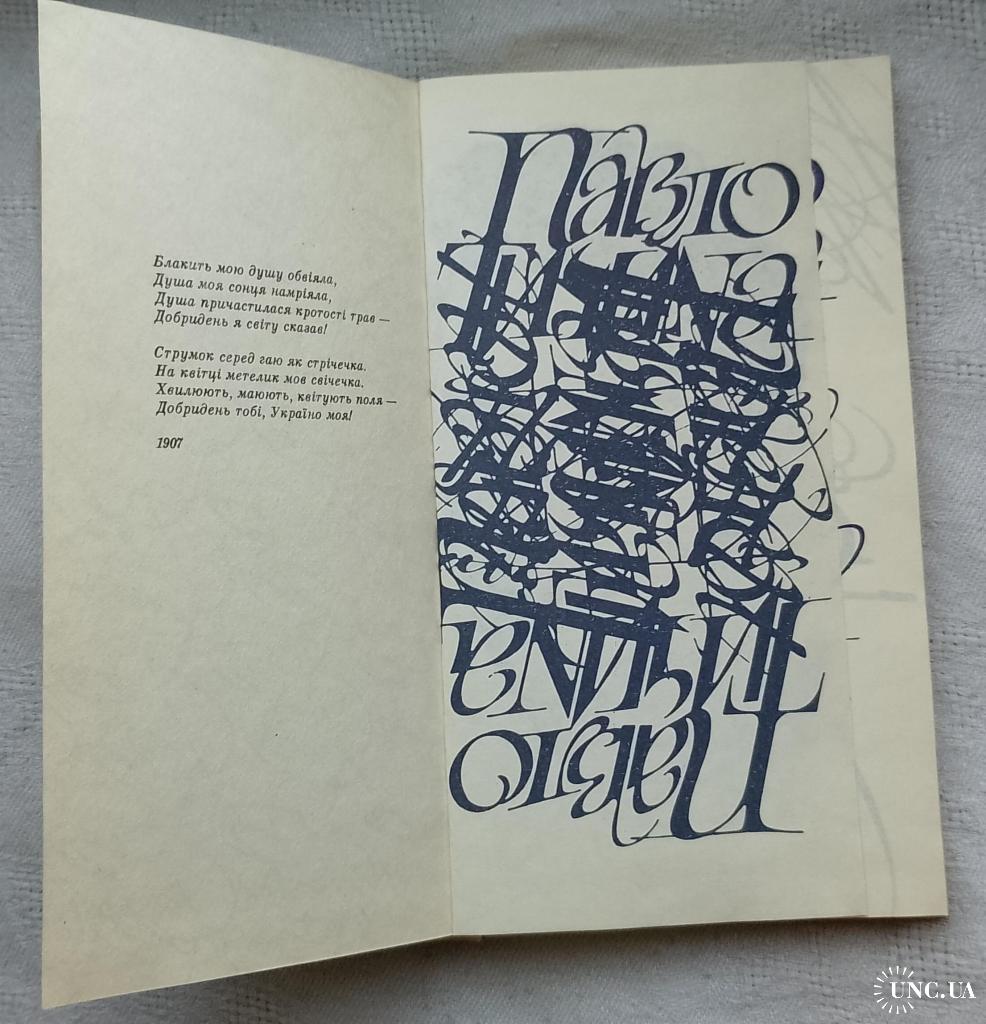 Блакить мою душу обвіяла,
Душа моя сонця намріяла,
Душа причастилася кротості трав —
Добридень я світу сказав!
Струмок серед гаю як стрічечка.
На квітці метелик мов свічечка.
Хвилюють, маюють, квітують поля —
Добридень тобі, Україно моя!
1907
Павло
Тичина
Тичина
Павло
UNC.UA